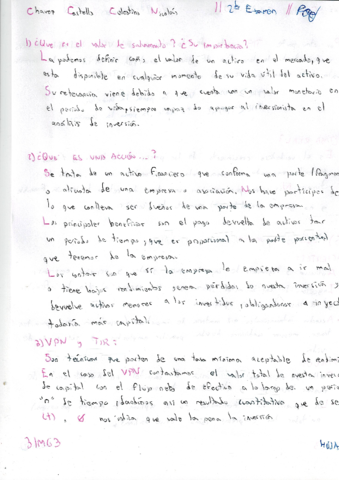 Chavez Castells Celestino Nicolás // 2do Examen //
1) ¿Que es el valor de salvamento? ¿Su importancia?
La podemos definir como el valor de un activo en el mercado, que
esta disponible en cualquier momento de su vida útil del activo.
Su relevancia viene debido a que cuenta con un valor monetario en
el periodo de vida, siempre va a apoyar al inversionista en el
análisis de inversión.
2) ¿Que ES UNA ACCIÓN...?
Se trata de un activo financiero que conforma una parte (fragmen
o alícuota de una empresa o asociación. Nos hace participes de
lo que conlleva ser dueños de una parte de la empresa.
Los principales beneficios son el pago devuelto de activos tras
un periodo de tiempo, que es proporcional a la parte porcentual
que tenemos de la empresa.
Los son que si la empresa le empieza a ir mal
o tiene bajos rendimientos genera pérdidas la nuestra inversión y
devuelve activos menores a los invertidos, obligandonos a inyect
todavía más capital.
3) VPN y TIR:
Son técnicas que parten de una tasa mínima aceptable de rendimi
En el caso del VPN contrastamos el valor total de nuestra invers
de capital con el flujo neto de efectivo a lo largo de un period
"n" de tiempo, dandonos así un resultado cuantitativo que de se
(+), nos indica que vale la pena la inversión
3IM63